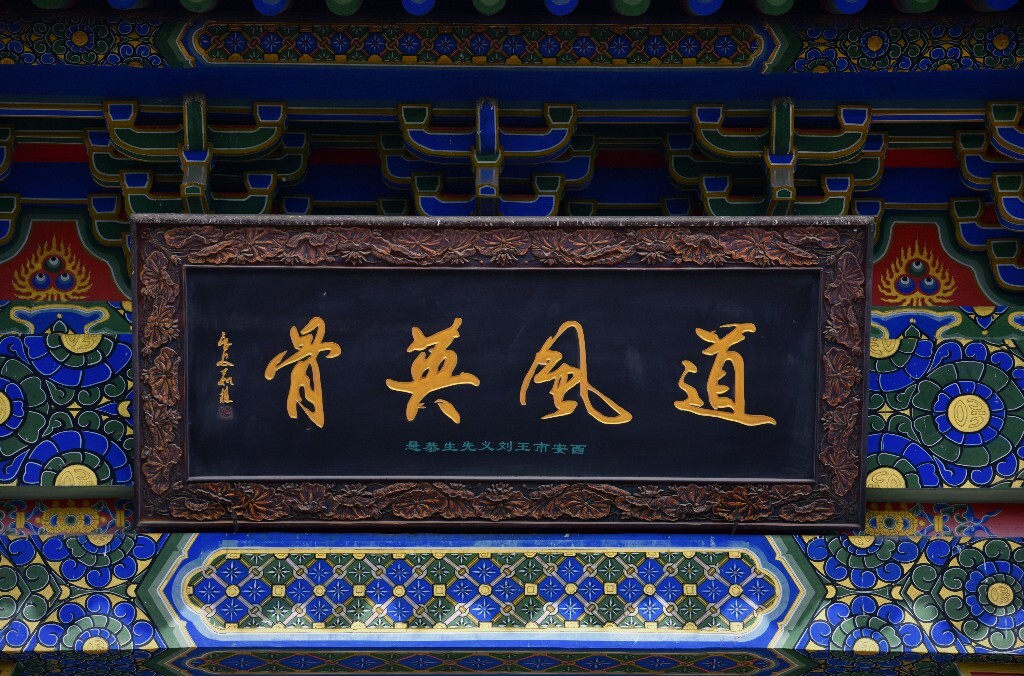 道風英骨
西安市王刘义先生恭悬